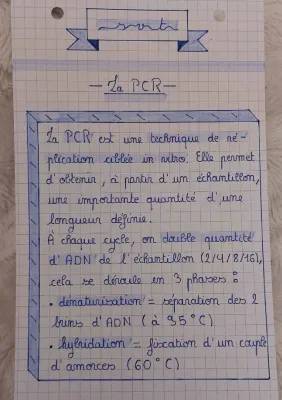 svt
— La PCR —
La PCR est une technique de ré-
plication ciblée in vitro. Elle permet
d'obtenir, à partir d'un échantillon,
une importante quantité d'une
longueur définie.
À chaque cycle, on double quantité
d'ADN de l'échantillon (2/4/8/16),
cela se déroule en 3 phases :
• dénaturisation = séparation des 2
brins d'ADN (à 95°C)
• hybridation = fixcation d'un couple
d'amorces (60°C)